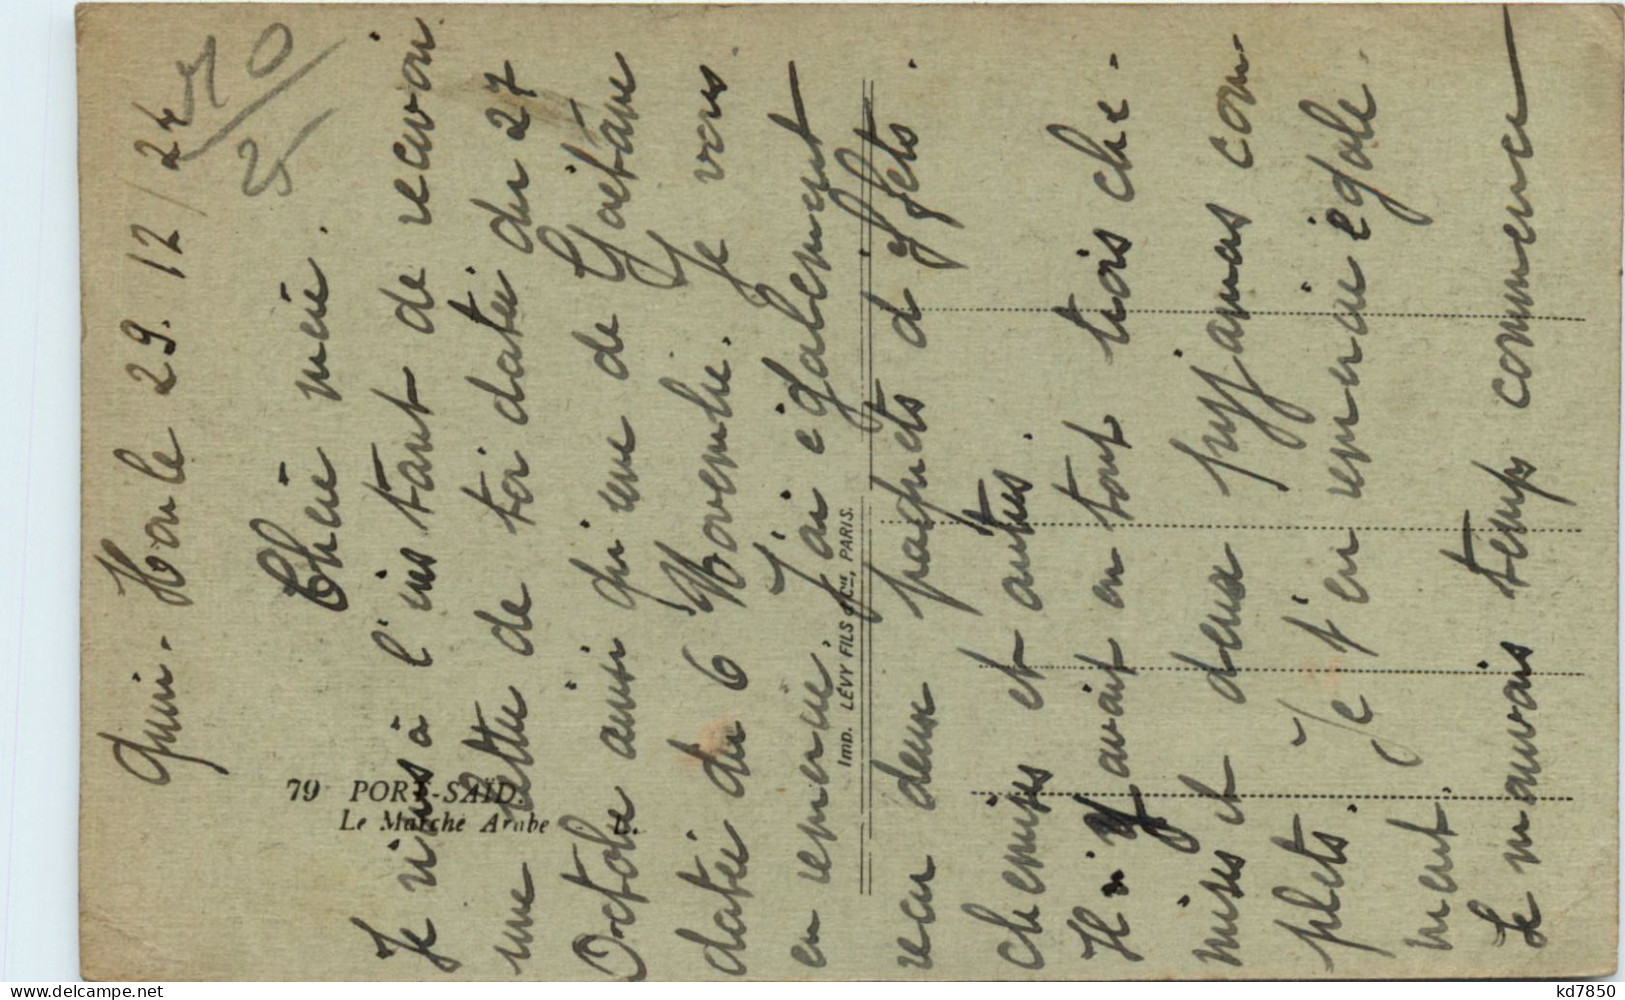 Quin-Hon le 29.12/24
10/25
Chère mère.
Je viens à l'instant de recevoir
une lettre de toi datée du 27
Octobre ainsi qu'une de Gaëtane
datée du 6 Novembre. Je vous
en remercie. J'ai également
reçu deux paquets d'effets.
chemises et autres.
Il y avait en tout trois che-
mises et deux pyjamas com
plets. Je t'en remercie égale
ment.
Le mauvais temps commence
79 PORT-SAÏD.
Le Marché Arabe L.
Imp. LÉVY FILS & Cie, PARIS.
kd7850